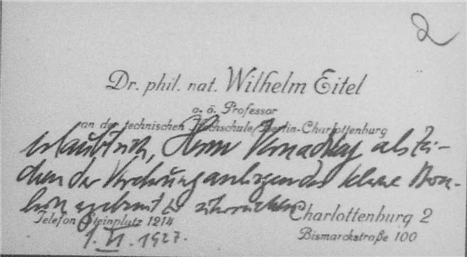 2
Dr. phil. nat. Wilhelm Eitel
o. ö. Professor
an der technischen Hochschule/Berlin-Charlottenburg
erlaubt sich, Herrn Vernadsky als Zei-
chen der Verehrung anliegendes kleine
ergebenst zu
Telefon Steinplatz 1214
Charlottenburg 2
1. VI. 1927.
Bismarckstraße 100